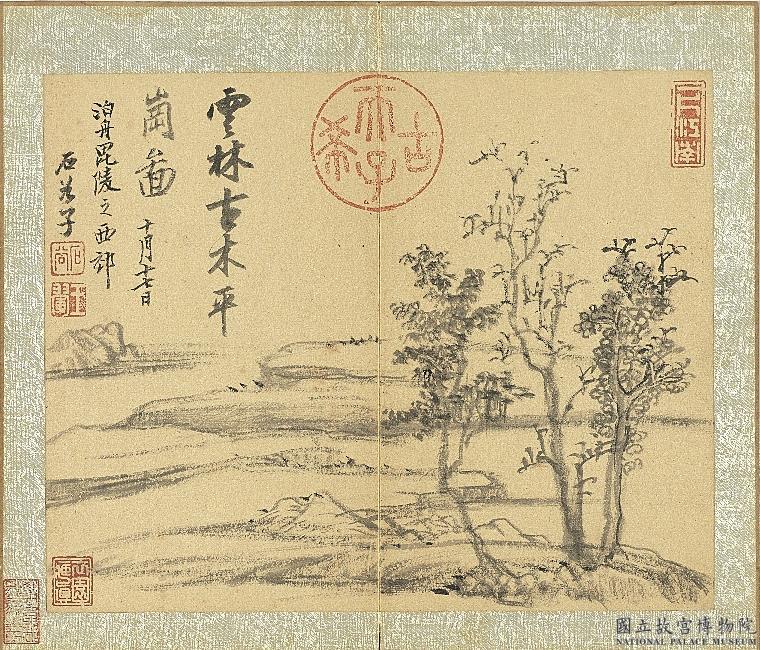 古希天子
雲林古木平
崗啚 十月十七日
泊舟毘陵之西郊
石谷子
石谷
國立故宮博物院
NATIONAL PALACE MUSEUM